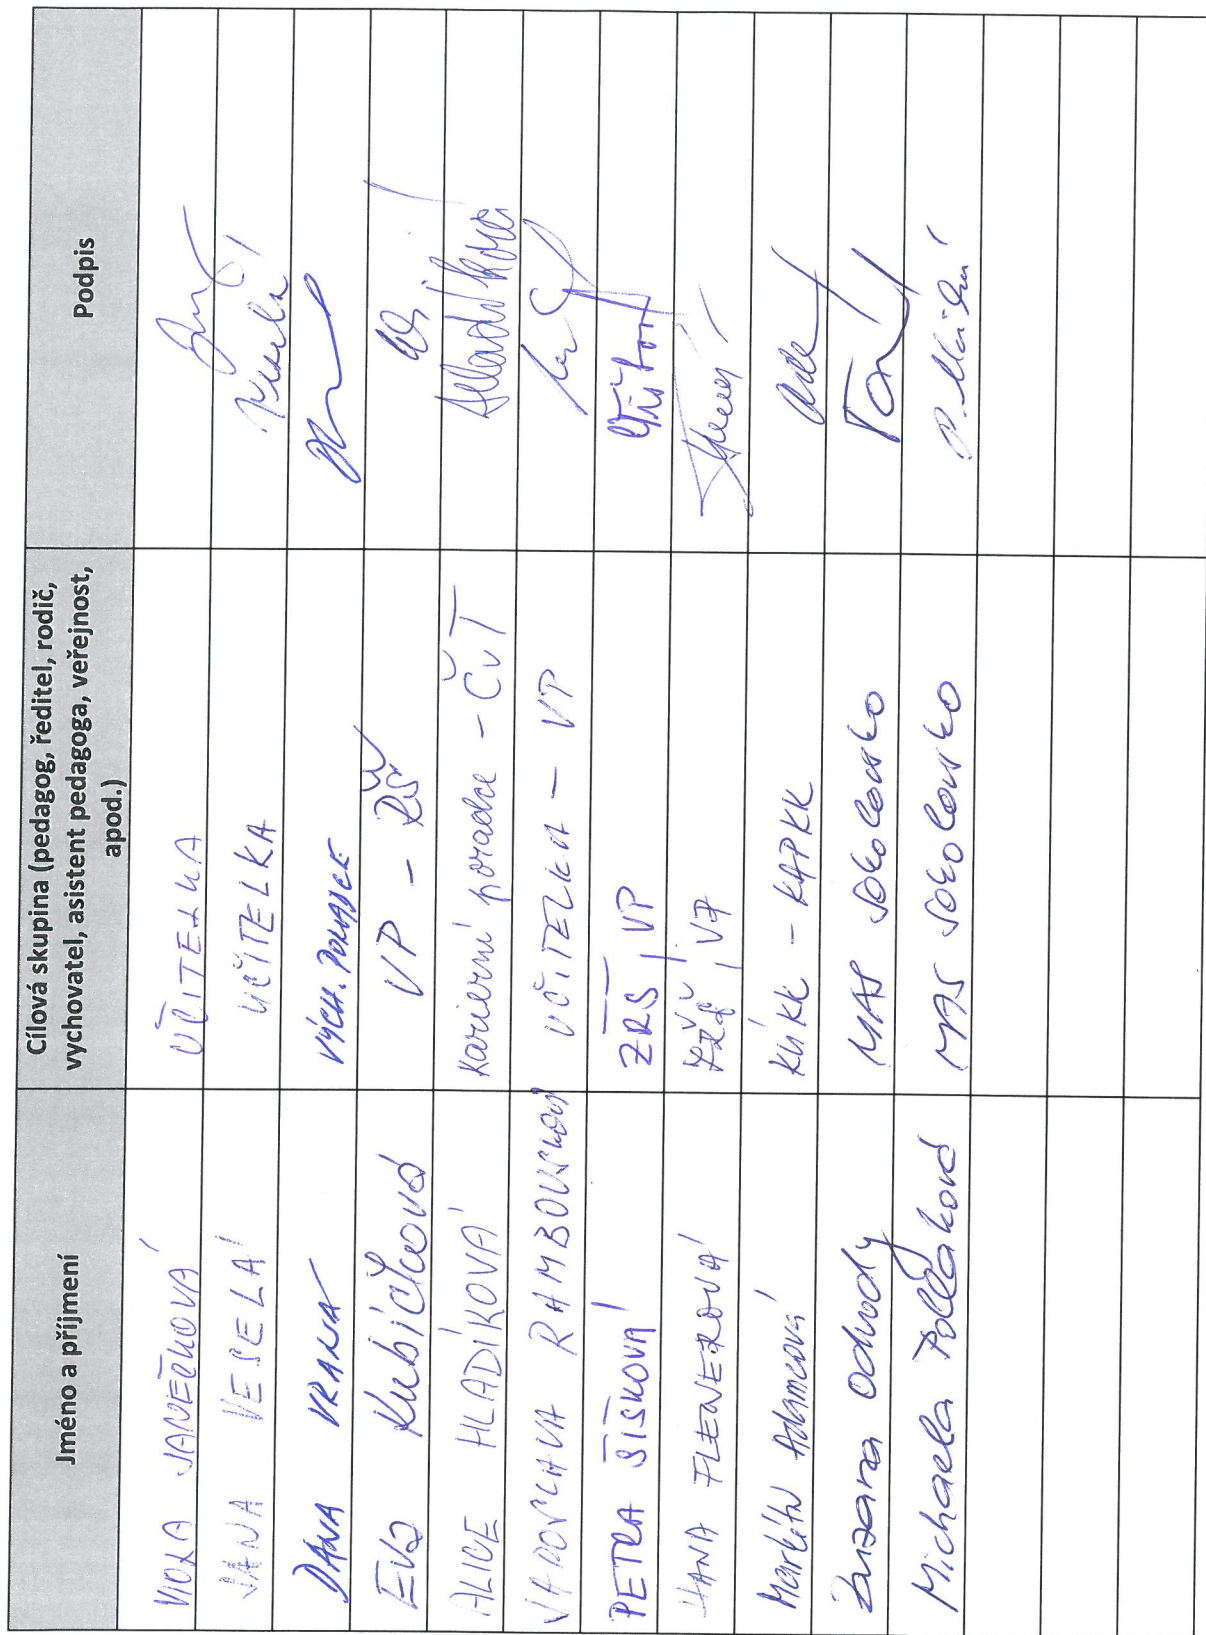 Jméno a příjmení
Cílová skupina (pedagog, ředitel, rodič,
vychovatel, asistent pedagoga, veřejnost,
apod.)
Podpis
VIOLA JANEČKOVÁ UČITELKA
JANA VESELÁ UČITELKA Veselá
DANA VRANÁ VÝCH. PORADCE
EVA Kubíčková VP - ZŠ
ALICE HLADÍKOVÁ Kariérní poradce - ČvT Hladíková
RAMBOUSKOVÁ UČITELKA - VP
PETRA ŠIŠKOVÁ ZŘŠ, VP
HANA FLENEROVÁ VP
Markéta Adamcová KÚKK - KAPKK
Zuzana Odvody MAS Sokolovsko
Michaela Polláková MAS Sokolovsko